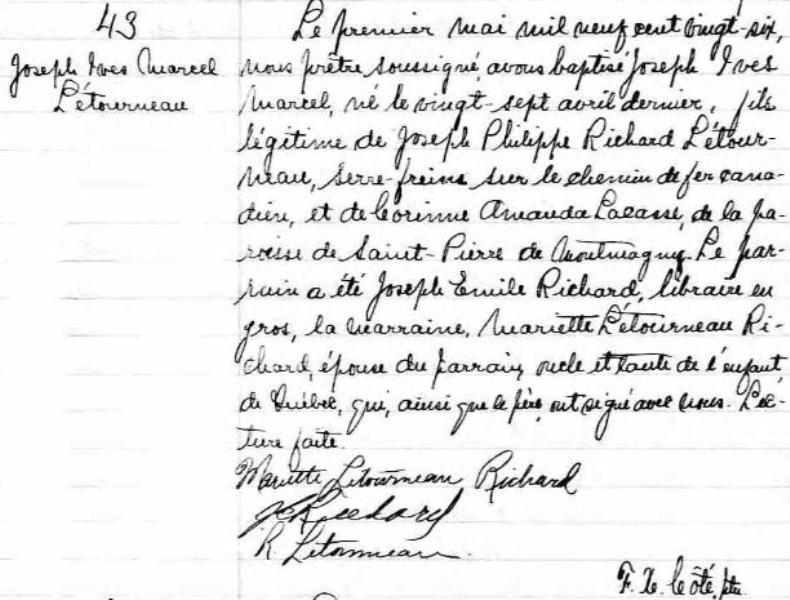 43
Joseph Yves Marcel
Létourneau
Le premier mai mil neuf cent vingt-six,
nous prêtre soussigné avons baptisé Joseph Yves
Marcel, né le vingt-sept avril dernier, fils
légitime de Joseph Philippe Richard Létour-
neau, serre-freins sur le chemin de fer cana-
dien, et de Corinne Amanda Lacasse, de la pa-
roisse de Saint-Pierre de Montmagny. Le par-
rain a été Joseph Emile Richard, libraire en
gros, la marraine, Mariette Létourneau Ri-
chard, épouse du parrain, oncle et tante de l'enfant
de Québec, qui, ainsi que le père, ont signé avec nous. Lec-
ture faite.
Mariette Letourneau Richard
J E Richard
R. Letourneau.
F. X. Côté, ptre